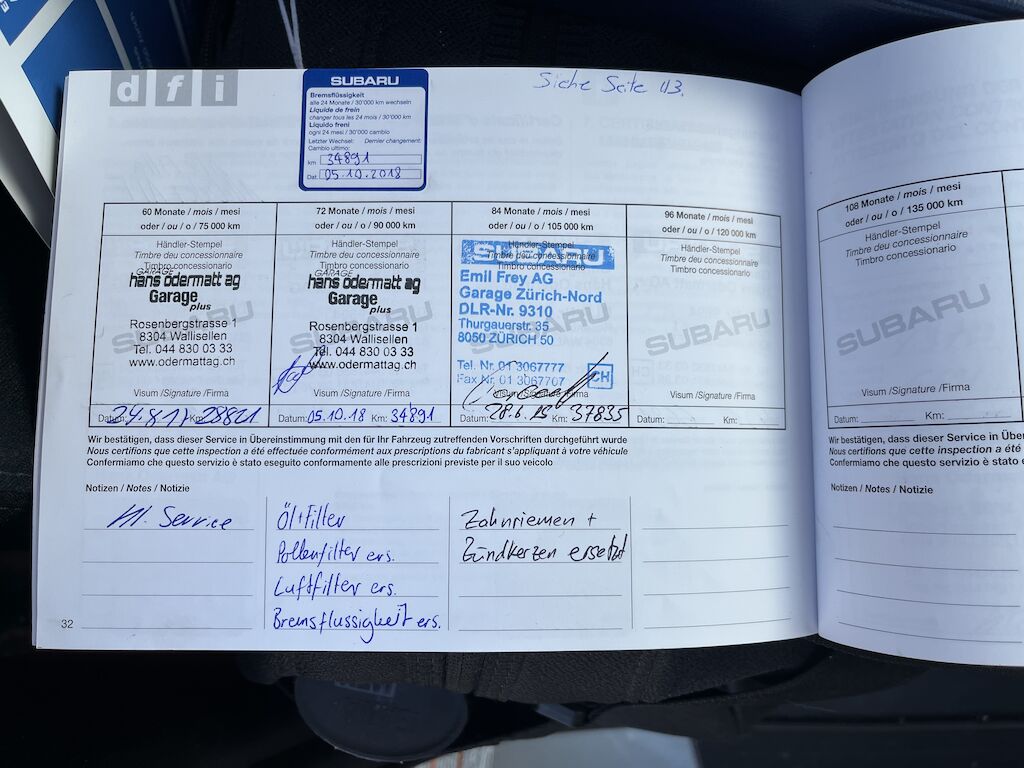 dfi
SUBARU
Bremsflüssigkeit
alle 24 Monate / 30'000 km wechseln
Liquide de frein
changer tous les 24 mois / 30'000 km
Liquido freni
ogni 24 mesi / 30'000 cambio
Letzter Wechsel: Dernier changement:
Cambio ultimo:
km 34891
Dat. 05.10.2018
Siehe Seite 43.
60 Monate / mois / mesi
oder / ou / o / 75 000 km
Händler-Stempel
Timbre deu concessionnaire
Timbro concessionario
GARAGE
hans odermatt ag
Garage
plus
SUBARU
Rosenbergstrasse 1
8304 Wallisellen
Tel. 044 830 03 33
www.odermattag.ch
Visum /Signature /Firma
Datum: 24.8.17 Km: 28821
72 Monate / mois / mesi
oder / ou / o / 90 000 km
Händler-Stempel
Timbre deu concessionnaire
Timbro concessionario
GARAGE
hans odermatt ag
Garage
plus
SUBARU
Rosenbergstrasse 1
8304 Wallisellen
Tel. 044 830 03 33
www.odermattag.ch
Visum /Signature /Firma
Datum: 05.10.18 Km: 34891
84 Monate / mois / mesi
oder / ou / o / 105 000 km
Händler-Stempel
Timbre deu concessionnaire
Timbro concessionario
SUBARU
Emil Frey AG
Garage Zürich-Nord
DLR-Nr. 9310
Thurgauerstr. 35
8050 ZÜRICH 50
SUBARU
Tel. Nr. 01 3067777
Fax Nr. 01 3067707
CH
Visum /Signature /Firma
Datum: 28.6.19 Km: 37835
96 Monate / mois / mesi
oder / ou / o / 120 000 km
Händler-Stempel
Timbre deu concessionnaire
Timbro concessionario
SUBARU
Visum /Signature /Firma
Datum: Km:
Wir bestätigen, dass dieser Service in Übereinstimmung mit den für Ihr Fahrzeug zutreffenden Vorschriften durchgeführt wurde
Nous certifions que cette inspection a été effectuée conformément aux prescriptions du fabricant s'appliquant à votre véhicule
Confermiamo che questo servizio è stato eseguito conformamente alle prescrizioni previste per il suo veicolo
Notizen / Notes / Notizie
Kl. Service
Öl+Filter
Pollenfilter ers.
Luftfilter ers.
Bremsflussigkeit ers.
Zahnriemen +
Zündkerzen ersetzt
32
108 Monate / mois / mesi
oder / ou / o / 135 000 km
Händler-Stempel
Timbre deu concessionnaire
Timbro concessionario
SUBARU
Visum /Signature /Firma
Datum: Km:
Wir bestätigen, dass dieser Service in Über
Nous certifions que cette inspection a été
Confermiamo che questo servizio è stato e
Notizen / Notes / Notizie